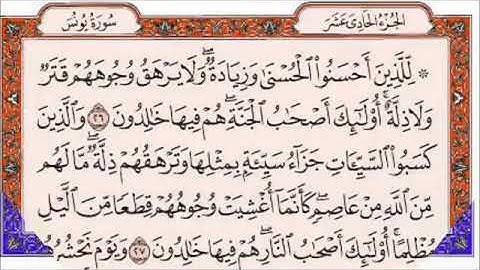 الجُزْءُ الحَادِى عَشَرَ
سُورَةُ يُونُسَ
۞ لِّلَّذِينَ أَحْسَنُوا۟ ٱلْحُسْنَىٰ وَزِيَادَةٌ ۖ وَلَا يَرْهَقُ وُجُوهَهُمْ قَتَرٌ
وَلَا ذِلَّةٌ ۚ أُو۟لَٰٓئِكَ أَصْحَٰبُ ٱلْجَنَّةِ ۖ هُمْ فِيهَا خَٰلِدُونَ ٢٦ وَٱلَّذِينَ
كَسَبُوا۟ ٱلسَّيِّـَٔاتِ جَزَآءُ سَيِّئَةٍۭ بِمِثْلِهَا وَتَرْهَقُهُمْ ذِلَّةٌ ۖ مَّا لَهُم
مِّنَ ٱللَّهِ مِنْ عَاصِمٍ ۖ كَأَنَّمَآ أُغْشِيَتْ وُجُوهُهُمْ قِطَعًا مِّنَ ٱلَّيْلِ
مُظْلِمًا ۚ أُو۟لَٰٓئِكَ أَصْحَٰبُ ٱلنَّارِ ۖ هُمْ فِيهَا خَٰلِدُونَ ٢٧ وَيَوْمَ نَحْشُرُهُمْ